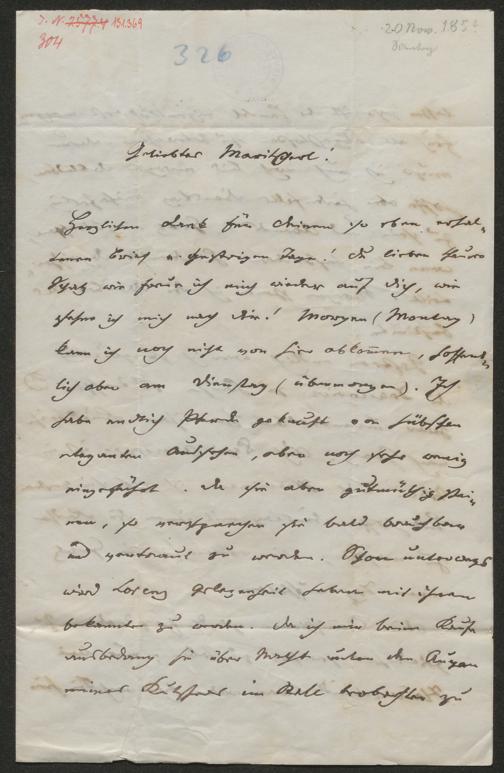 J. N. 25774 151.369
304
326
20 Nov. 185
Sonntag
Geliebtes Maritscherl!
Herzlichen Dank für Deinen so eben erhal-
tenen Brief v. gestrigen Tage! Du lieber theurer
Schatz wie freue ich mich wieder auf Dich, wie
sehne ich mich nach Dir! Morgen (Montag)
kann ich noch nicht von hier abkommen, hoffent-
lich aber am Dienstag (übermorgen). Ich
habe endlich Pferde gekauft von hübschen
eleganten Aussehen, aber noch sehr wenig
eingeführt. Da sie aber gutmüthig
, so versprechen sie bald brauchbar
und vertraut zu werden. Schon unterwegs
wird Lorenz Gelegenheit haben mit ihnen
bekannter zu werden. Da ich mir beim Kaufe
ausbedang sie über Nacht unter den Augen
meines Kutschers im Stall beobachten zu